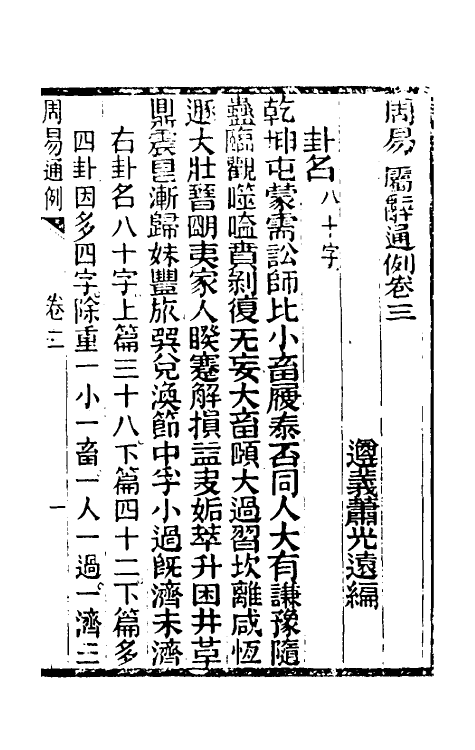 周易屬辭通例卷三
遵義蕭光遠編
卦名八十字
乾坤屯蒙需訟師比小畜履泰否同人大有謙豫隨
蠱臨觀噬嗑賁剝復无妄大畜頤大過習坎離咸恆
遯大壯晉明夷家人睽蹇解損益夬姤萃升困井革
鼎震艮漸歸妹豐旅巽兌渙節中孚小過旣濟未濟
右卦名八十字上篇三十八下篇四十二下篇多
四卦因多四字除重一小一畜一人一過一濟三
周易通例 卷三 一